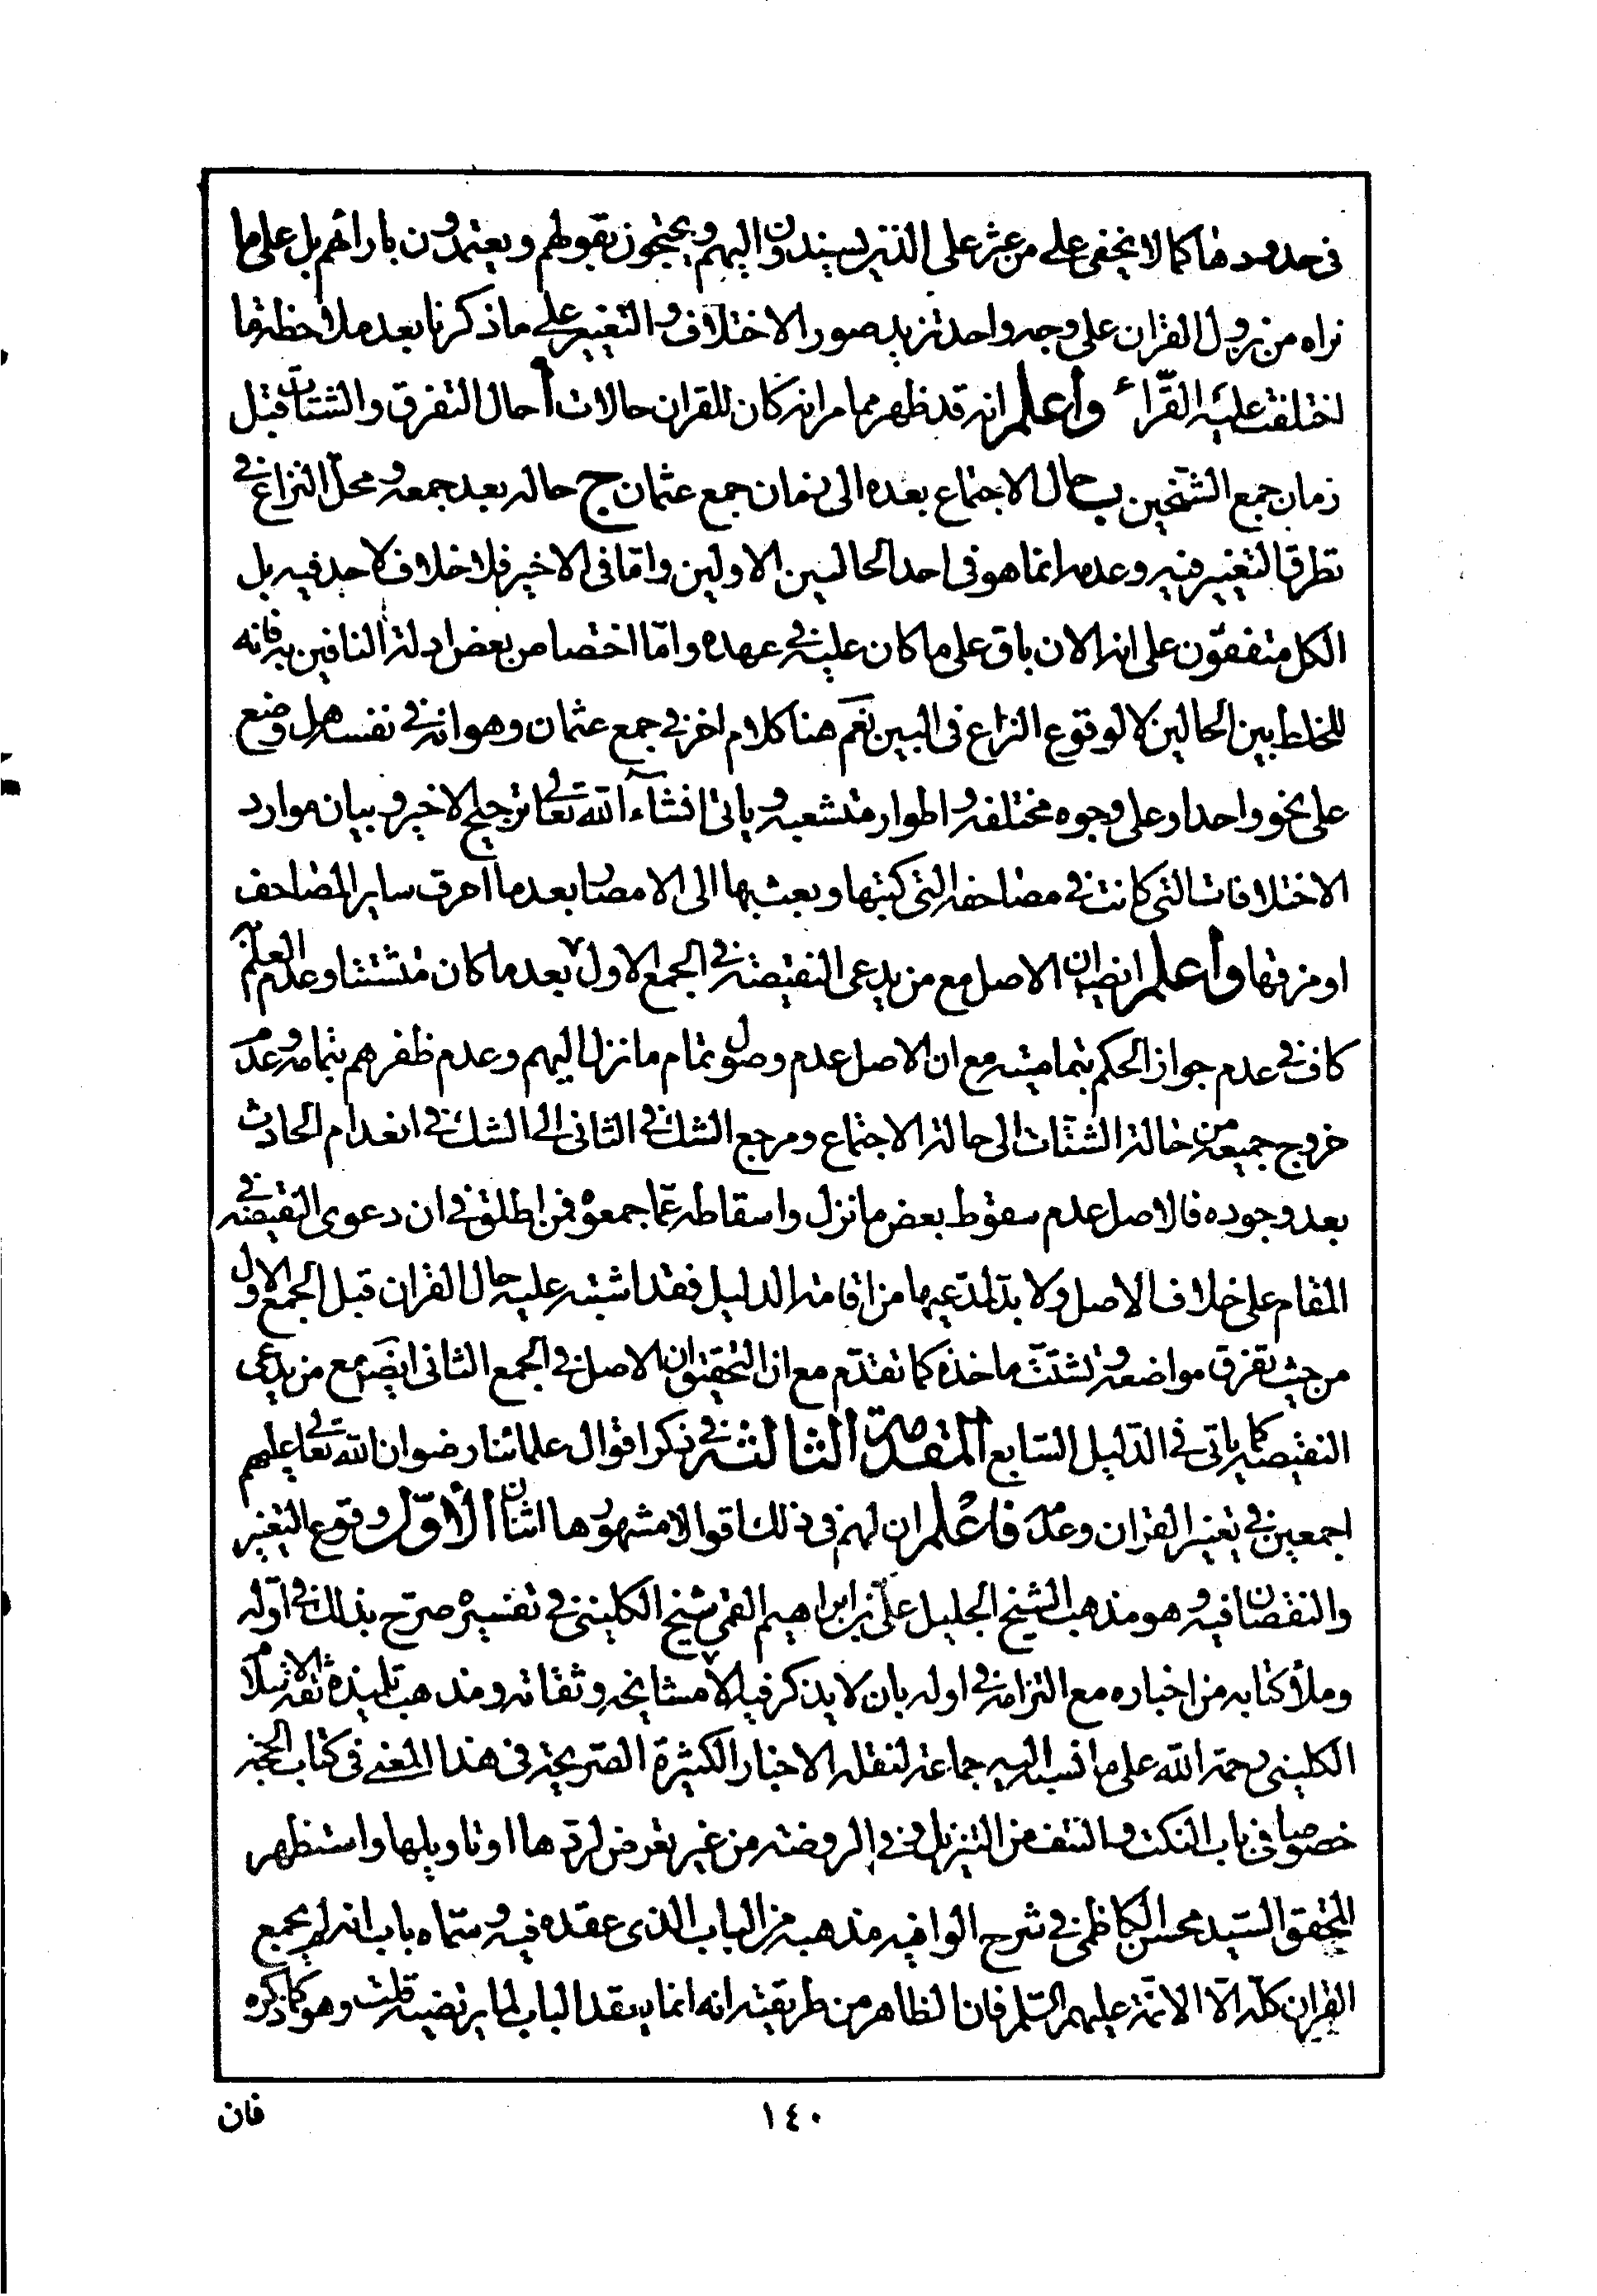 فى حدودها كما لا يخفى على من عثر على الذين يستندون اليهم ويحتجون بقولهم ويعتمدون بارائهم بل على ما
نراه من نزول القران على وجه واحد تزيد صور الاختلاف والتغيير على ما ذكرنا بعد ملاحظة ما
اختلفت عليه القرّاء واعلم انه قد ظهر مما مر انه كان للقران حالات أ حال التفرق والشتات قبل
زمان جمع الشيخين ب حال الاجتماع بعده الى زمان جمع عثمان ج حاله بعد جمعه ومحل النزاع فى
تطرق التغيير فيه وعدمه انما هو فى احد الحالين الاولين واما فى الاخير فلا خلاف لاحد فيه بل
الكل متفقون على انه الان باق على ما كان عليه فى عهده وامّا اختصاص بعض ادلة النافين به فانه
للخلط بين الحالين لا لوقوع النزاع فى البين نعم هنا كلام اخر فى جمع عثمان وهو انه فى نفسه هل وضع
على نحو واحد او على وجوه مختلفة واطوار متشعبة وياتى انشاء الله تعالى ترجيح الاخير وبيان موارد
الاختلافات التى كانت فى مصاحفه التى كتبها وبعث بها الى الامصار بعد ما احرق ساير المصاحف
او مزقها واعلم ايضا ان الاصل مع من يدعى النقيصة فى الجمع الاول بعد ما كان متشتتا وعدم العلم
كاف فى عدم جواز الحكم بتماميته مع ان الاصل عدم وصول تمام ما نزل اليهم وعدم ظفرهم بتمامه وعدم
خروج جميعه من حالة الشتات الى حالة الاجتماع ومرجع الشك فى الثانى الى الشك فى انعدام الحادث
بعد وجوده فالاصل عدم سقوط بعض ما نزل واسقاطه عمّا جمعوه فمن اطلق فى ان دعوى النقيصة فى
المقام على خلاف الاصل ولا بد لمدّعيها من اقامة الدليل فقد اشتبه عليه حال القران قبل الجمع الاول
من حيث تفرق مواضعه وتشتّت ماخذه كما تقدّم مع ان التحقيق ان الاصل فى الجمع الثانى ايضا مع من يدعى
النقيصة كما ياتى فى الدليل السابع المقدمة الثالثة فى ذكر اقوال علمائنا رضوان الله تعالى عليهم
اجمعين فى تغيير القران وعدمه فاعلم ان لهم فى ذلك اقوالا مشهورها اثنان الأوّل وقوع التغيير
والنقصان فيه وهو مذهب الشيخ الجليل علىّ بن ابراهيم القمى شيخ الكلينى فى تفسيره صرّح بذلك فى اوّله
وملأ كتابه من اخباره مع التزامه فى اوله بان لا يذكر فيه الا مشايخه وثقاته ومذهب تلميذه ثقة الاسلام
الكلينى رحمة الله على ما نسبه اليه جماعة لنقله الاخبار الكثيرة الصريحة فى هذا المعنى فى كتاب الحجة
خصوصا فى باب النكت والنتف من التنزيل وفى الروضة من غير تعرض لردها او تاويلها واستظهر
المحقق السيد محسن الكاظمى فى شرح الوافية مذهبه من الباب الذى عقده فيه وسمّاه باب انه لم يجمع
القران كلّه الا الائمة عليهم السّلم فان الظاهر من طريقته انه انما يعقد الباب لما يرتضيه قلت وهو كما ذكره
١٤٠
فان